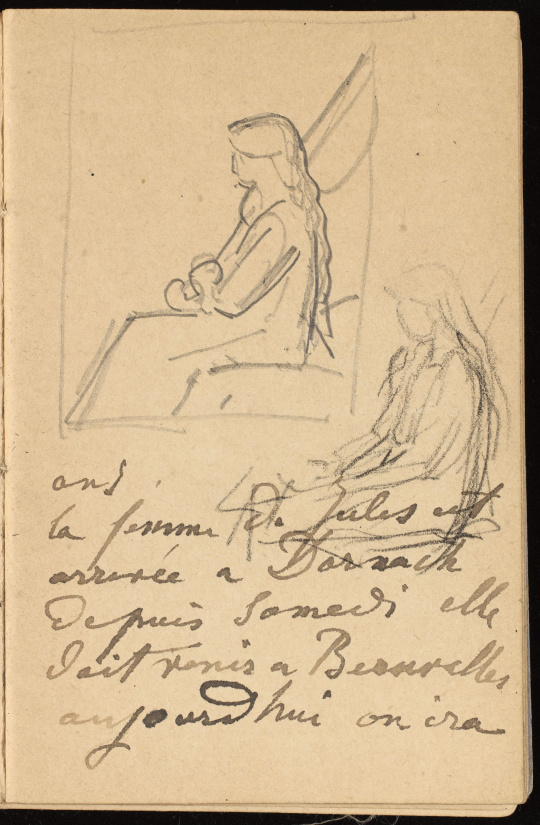 ans.
la femme de Jules est
arrivée a Dornach
Depuis Samedi elle
doit venir a Bernvelles
aujourd'hui on ira